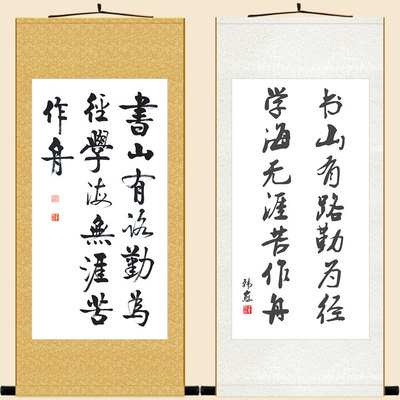 書山有路勤為
径學海無涯苦
作舟
书山有路勤为径
学海无涯苦作舟
韩愈